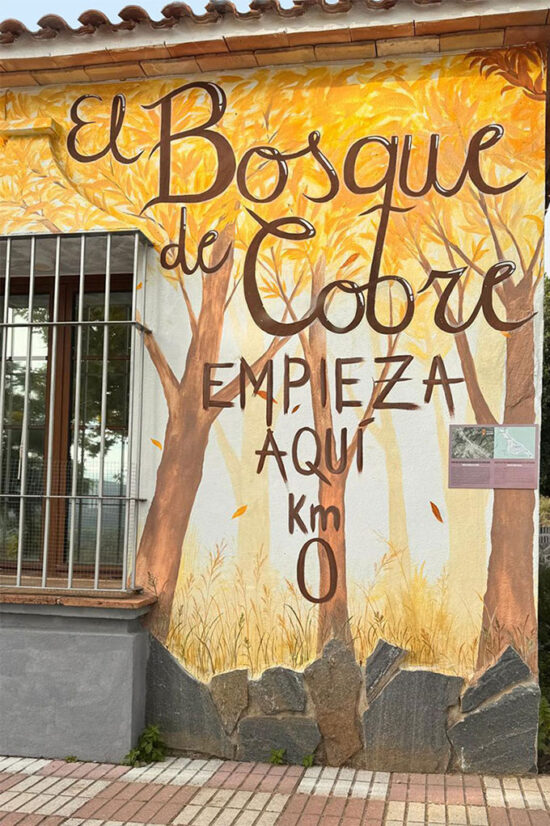 El Bosque
de Cobre
EMPIEZA
AQUÍ
Km
0